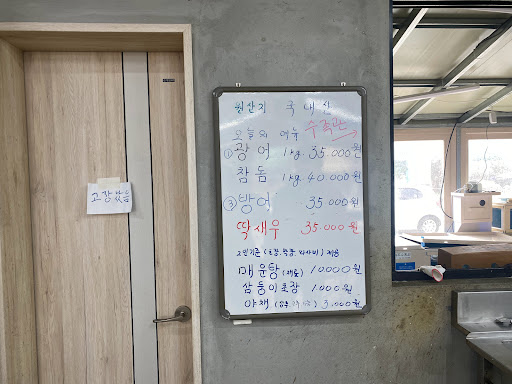 원산지 국내산
오늘의 어류 수족관
① 광어 1kg. 35.000원
참돔 1kg 40.000원
③ 방어 35.000원
딱새우 35.000원
매운탕 (재료) 10000원
삼동이초장 1000원
야채 3,000원
고장났음